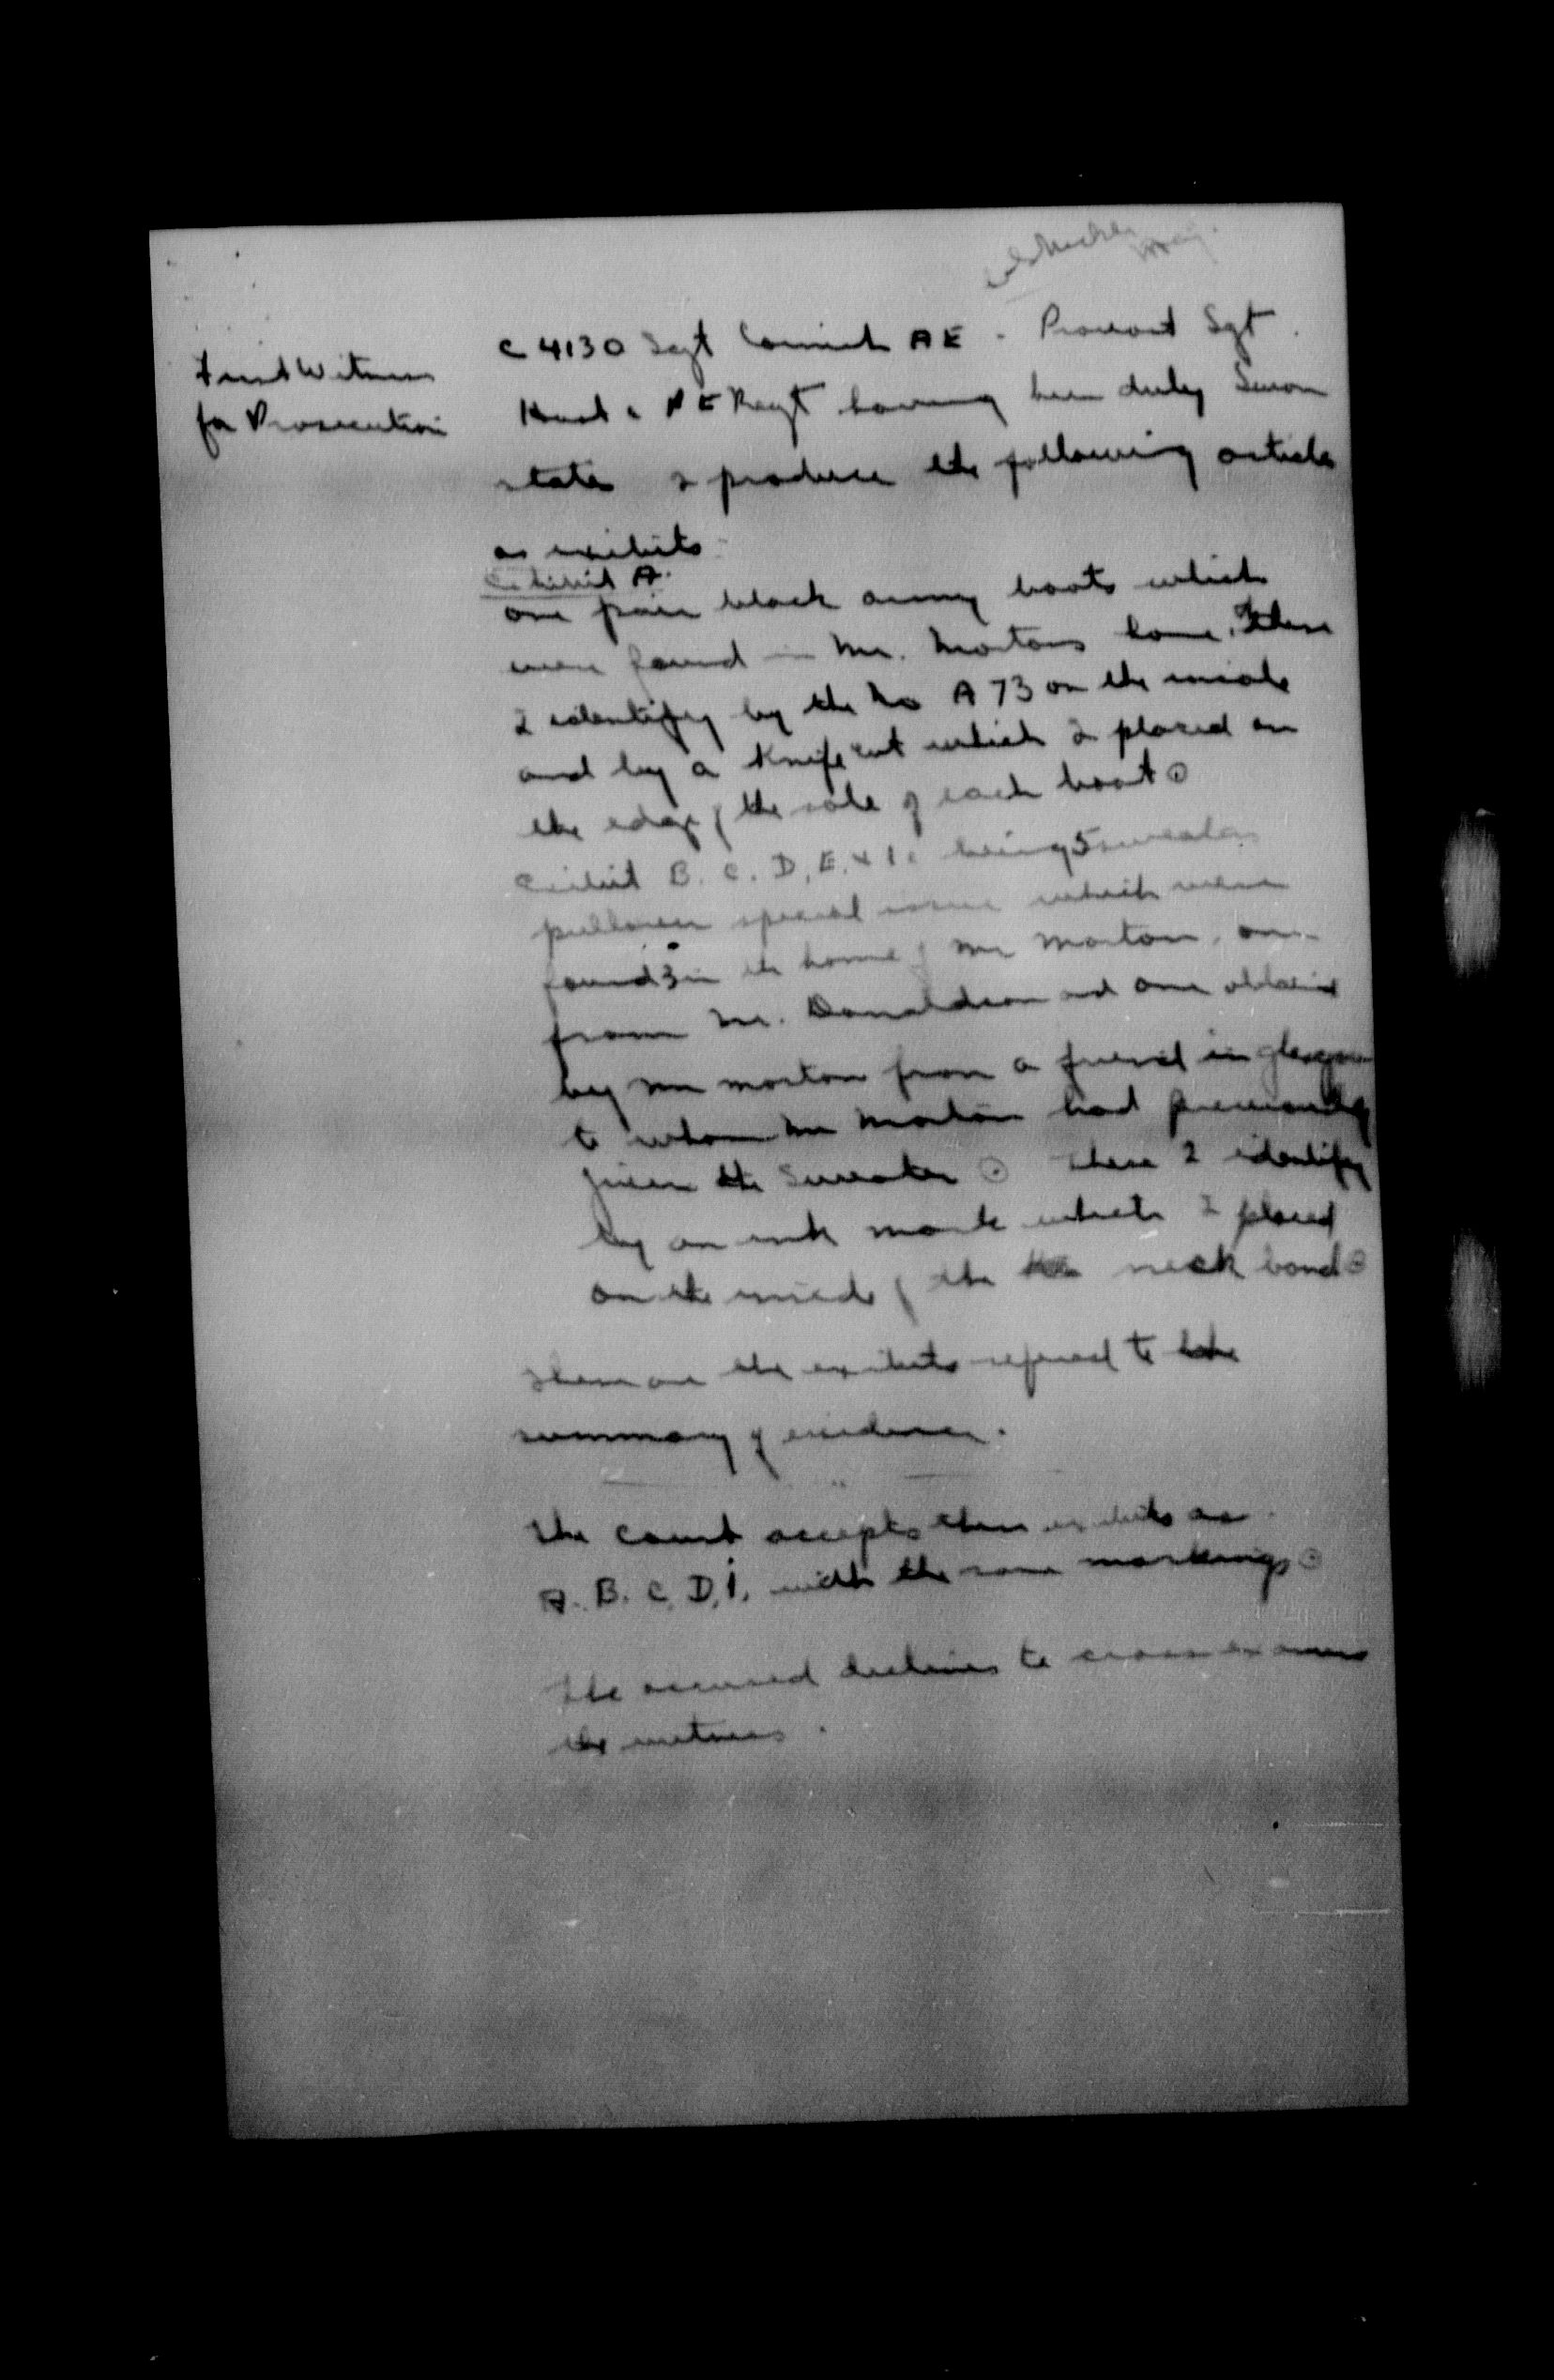 First Witness
for Prosecution
C 4130 Sgt Cornish A E - Provost Sgt.
Hast & P E Regt having been duly sworn
states I produce the following articles
as exibits
Exhibit A.
one pair black army boots which
were found in Mr. Mortons home. These
I identify by the No A 73 on the inside
and by a knife cut which I placed on
the edge of the sole of each boot.
Exibit B. C. D, E, & 1. being 5 sweaters
pullover special issue which were
found 3 in the home of Mr Morton, one
from Mr. Donaldson and one obtained
by Mr Morton from a friend in Glasgow
to whom Mr Morton had previously
given the Sweater. These I identify
by an ink mark which I placed
on the inside of the neck band.
These are the exibits refered to
summary of evidence.
The court accepts these exibits as
A. B. C. D, 1, with the same markings.
The accused declines to cross examine
the witness.